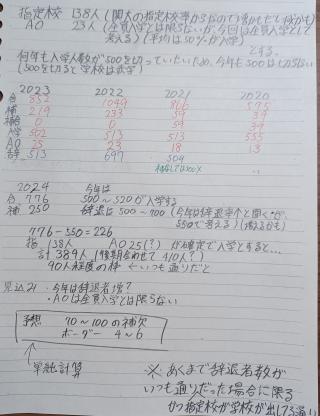 指定校 138人
AO 23人 (全員入学とは限らないが、今回は全員入学として
考える) (平均は50%が入学)
とする。
何年も入学人数が500を切っていないため、今年も500は切らない
(500を切ると学校は赤字)
2023 2022 2021 2020
合 852 1049 866 575
補 219 233 59 39
0 0 59 39
入学 502 513 513 555
AO 25 23 18 13
辞 513 697 509
2024 今年は
合 776 500~520が入学する
補 250 辞退は500~700 (今年は辞退率低と聞くが、
550で考える)
776-550=226
指 138人 AO25(?)が確定で入学とすると...
計389人 (後期合わせて410人?)
90人程度の枠 ←いつも通りだと
見込み ・今年は辞退者増?
・AOは全員入学とは限らない
予想 70~100の補欠
ボーダー 4~6
↑
単純計算
※あくまで辞退者数が
いつも通りだった場合に限る
かつ指定校が学校が出してる通り